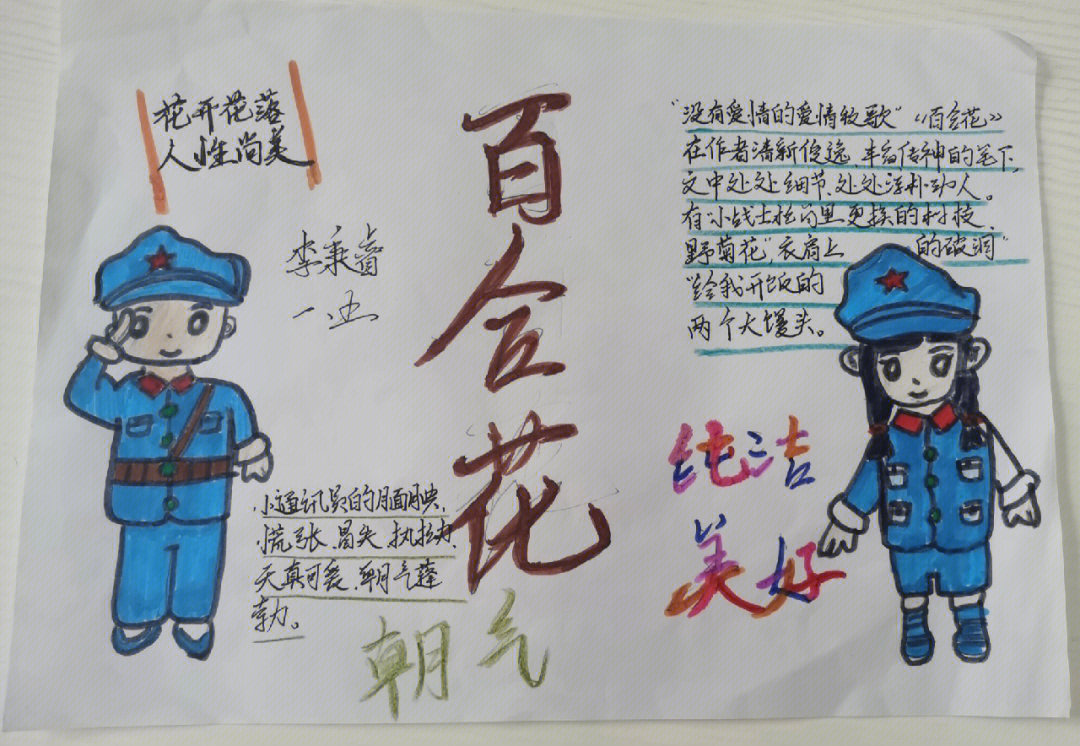 花开花落
人性尚美
李秉睿
一.五
百合花
小通讯员的腼腆、
慌张、冒失、执拗、
天真可爱、朝气蓬
勃。
朝气
"没有爱情的爱情牧歌"《百合花》
在作者清新俊逸、丰富传神的笔下,
文中处处细节、处处淳朴动人。
有"小战士枪筒里更换的树枝、
野菊花",衣肩上 的破洞"
"给我开饭的
两个大馒头。
纯洁
美好